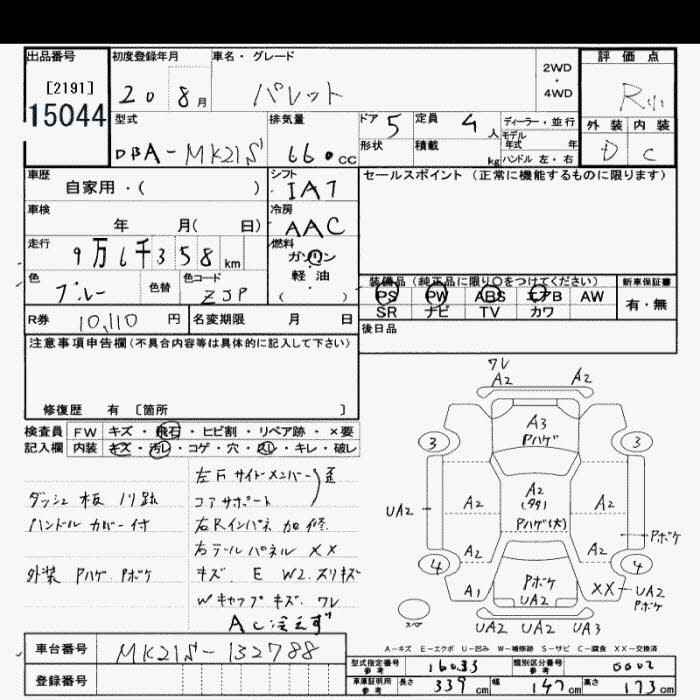 出品番号
[2191]
15044
初度登録年月
20 8月
車名・グレード
パレット
2WD
・
4WD
評価点
R
外装 内装
D C
型式
DBA-MK21S
排気量
660cc
ドア 5
定員 4人
ディーラー・並行
モデル年式 年
形状
積載 kg
ハンドル 左・右
車歴
自家用・( )
シフト
IAT
セールスポイント (正常に機能するものに限ります)
車検
年 月( 日)
冷房
AAC
走行
9万6千358km
燃料
ガソリン
軽・油
( )
色
ブルー
色替
色コード
ZJP
装備品 (純正品に限り○をつけてください)
PS PW ABS エアB AW
SR ナビ TV カワ
新車保証書
有・無
R券 10,110円
名変期限 月 日
後日品
注意事項申告欄(不具合内容等は具体的に記入して下さい)
修復歴 有 [箇所 ]
検査員記入欄
FW キズ・飛石・ヒビ割・リペア跡・×要
内装 キズ・汚レ・コゲ・穴・スレ・キレ・破レ
左F サイドメンバー
コアサポート
ダッシュ板 ノリ跡
ハンドルカバー付
右Rインパネ 加修
右テールパネル XX
外装 Pハゲ Pボケ
キズ. E W2. スリキズ
Wキャップキズ. ワレ
AC冷えず
ワレ
A2 A2
A3
Pハゲ
3 3
A2
Pハゲ(大)
A2 A2
UA2
Pボケ
A2 A2
4 4
Pボケ
UA2
A1
XX UA2
Pボケ
スペア
UA2 UA2 UA3
A-キズ E-エクボ U-凹み W-補修跡 S-サビ C-腐食 XX-交換済
車台番号 MK21S-132788
登録番号
型式指定番号 参考 16033
類別区分番号 参考 0002
車庫証明用 参考 長さ 339cm 幅 147cm 高さ 173cm